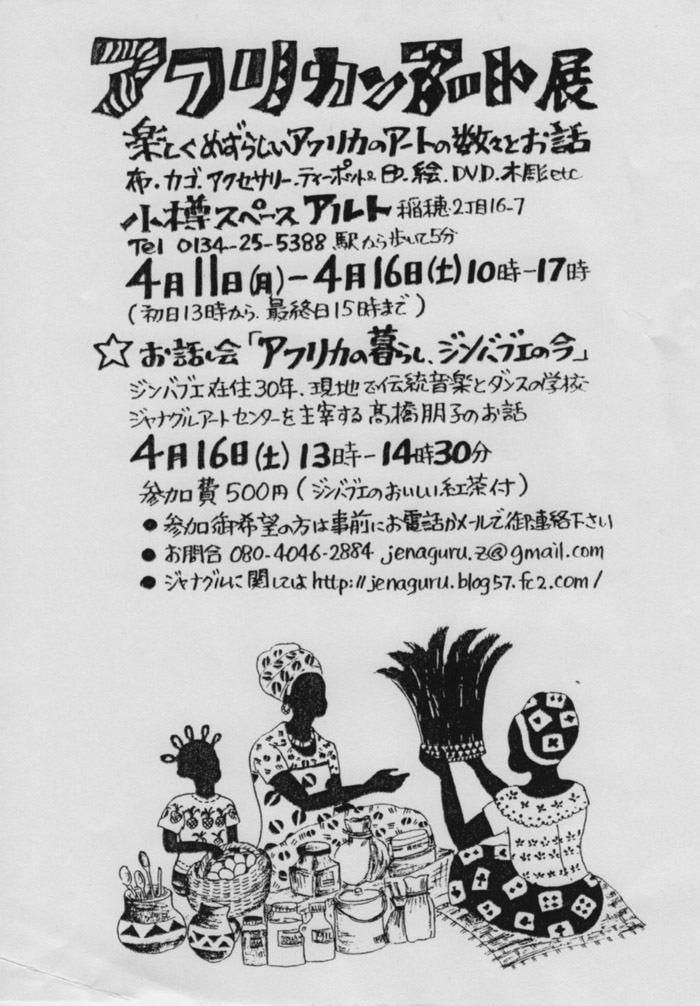 アフリカンアート展
楽しくめずらしいアフリカのアートの数々とお話
布・カゴ.アクセサリー.ティーポット.皿.絵.DVD.木彫etc
小樽スペースアルト 稲穂2丁目16-7
Tel 0134-25-5388 駅から歩いて5分
4月11日(月)-4月16日(土)10時-17時
(初日13時から.最終日15時まで)
☆お話し会「アフリカの暮らし、ジンバブエの今」
ジンバブエ在住30年.現地で伝統音楽とダンスの学校
ジャナグルアートセンターを主宰する高橋朋子のお話
4月16日(土)13時-14時30分
参加費500円(ジンバブエのおいしい紅茶付)
● 参加御希望の方は事前にお電話かメールで御連絡下さい
● お問合 080-4046-2884 jenaguru.z@gmail.com
● ジャナグルに関しては http://jenaguru.blog57.fc2.com/